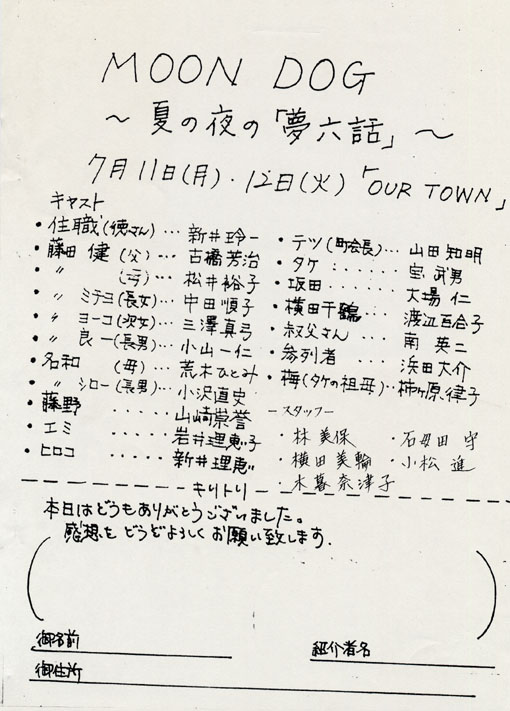 MOON DOG
〜夏の夜の「夢六話」〜
7月11日(月)・12日(火)「OUR TOWN」
キャスト
・住職(徳さん)…新井玲一
・藤田 健(父)…古橋芳治
・〃 (母)…松井裕子
・〃 ミチヨ(長女)…中田順子
・〃 ヨーコ(次女)…三澤真弓
・〃 良一(長男)…小山一仁
・名和 (母)…荒木ひとみ
・〃 シロー(長男)…小沢直史
・藤野 ・・・・・山崎崇誉
・エミ ・・・・・岩井理恵子
・ヒロコ ・・・・・新井理恵
・テツ(町会長)…山田知明
・タケ ・・・・・宝 武男
・坂田 ・・・・・大場 仁
・横田千鶴…渡辺百合子
・叔父さん…南 英二
・参列者…浜田大介
・梅(タケの祖母)…柿ヶ原律子
―スタッフ―
・林美保 ・石毋田 守
・横田美輪 ・小松 進
・木暮奈津子
キリトリ
本日はどうもありがとうございました。
感想を どうぞよろしく お願い致します.
御名前
紹介者名
御住所